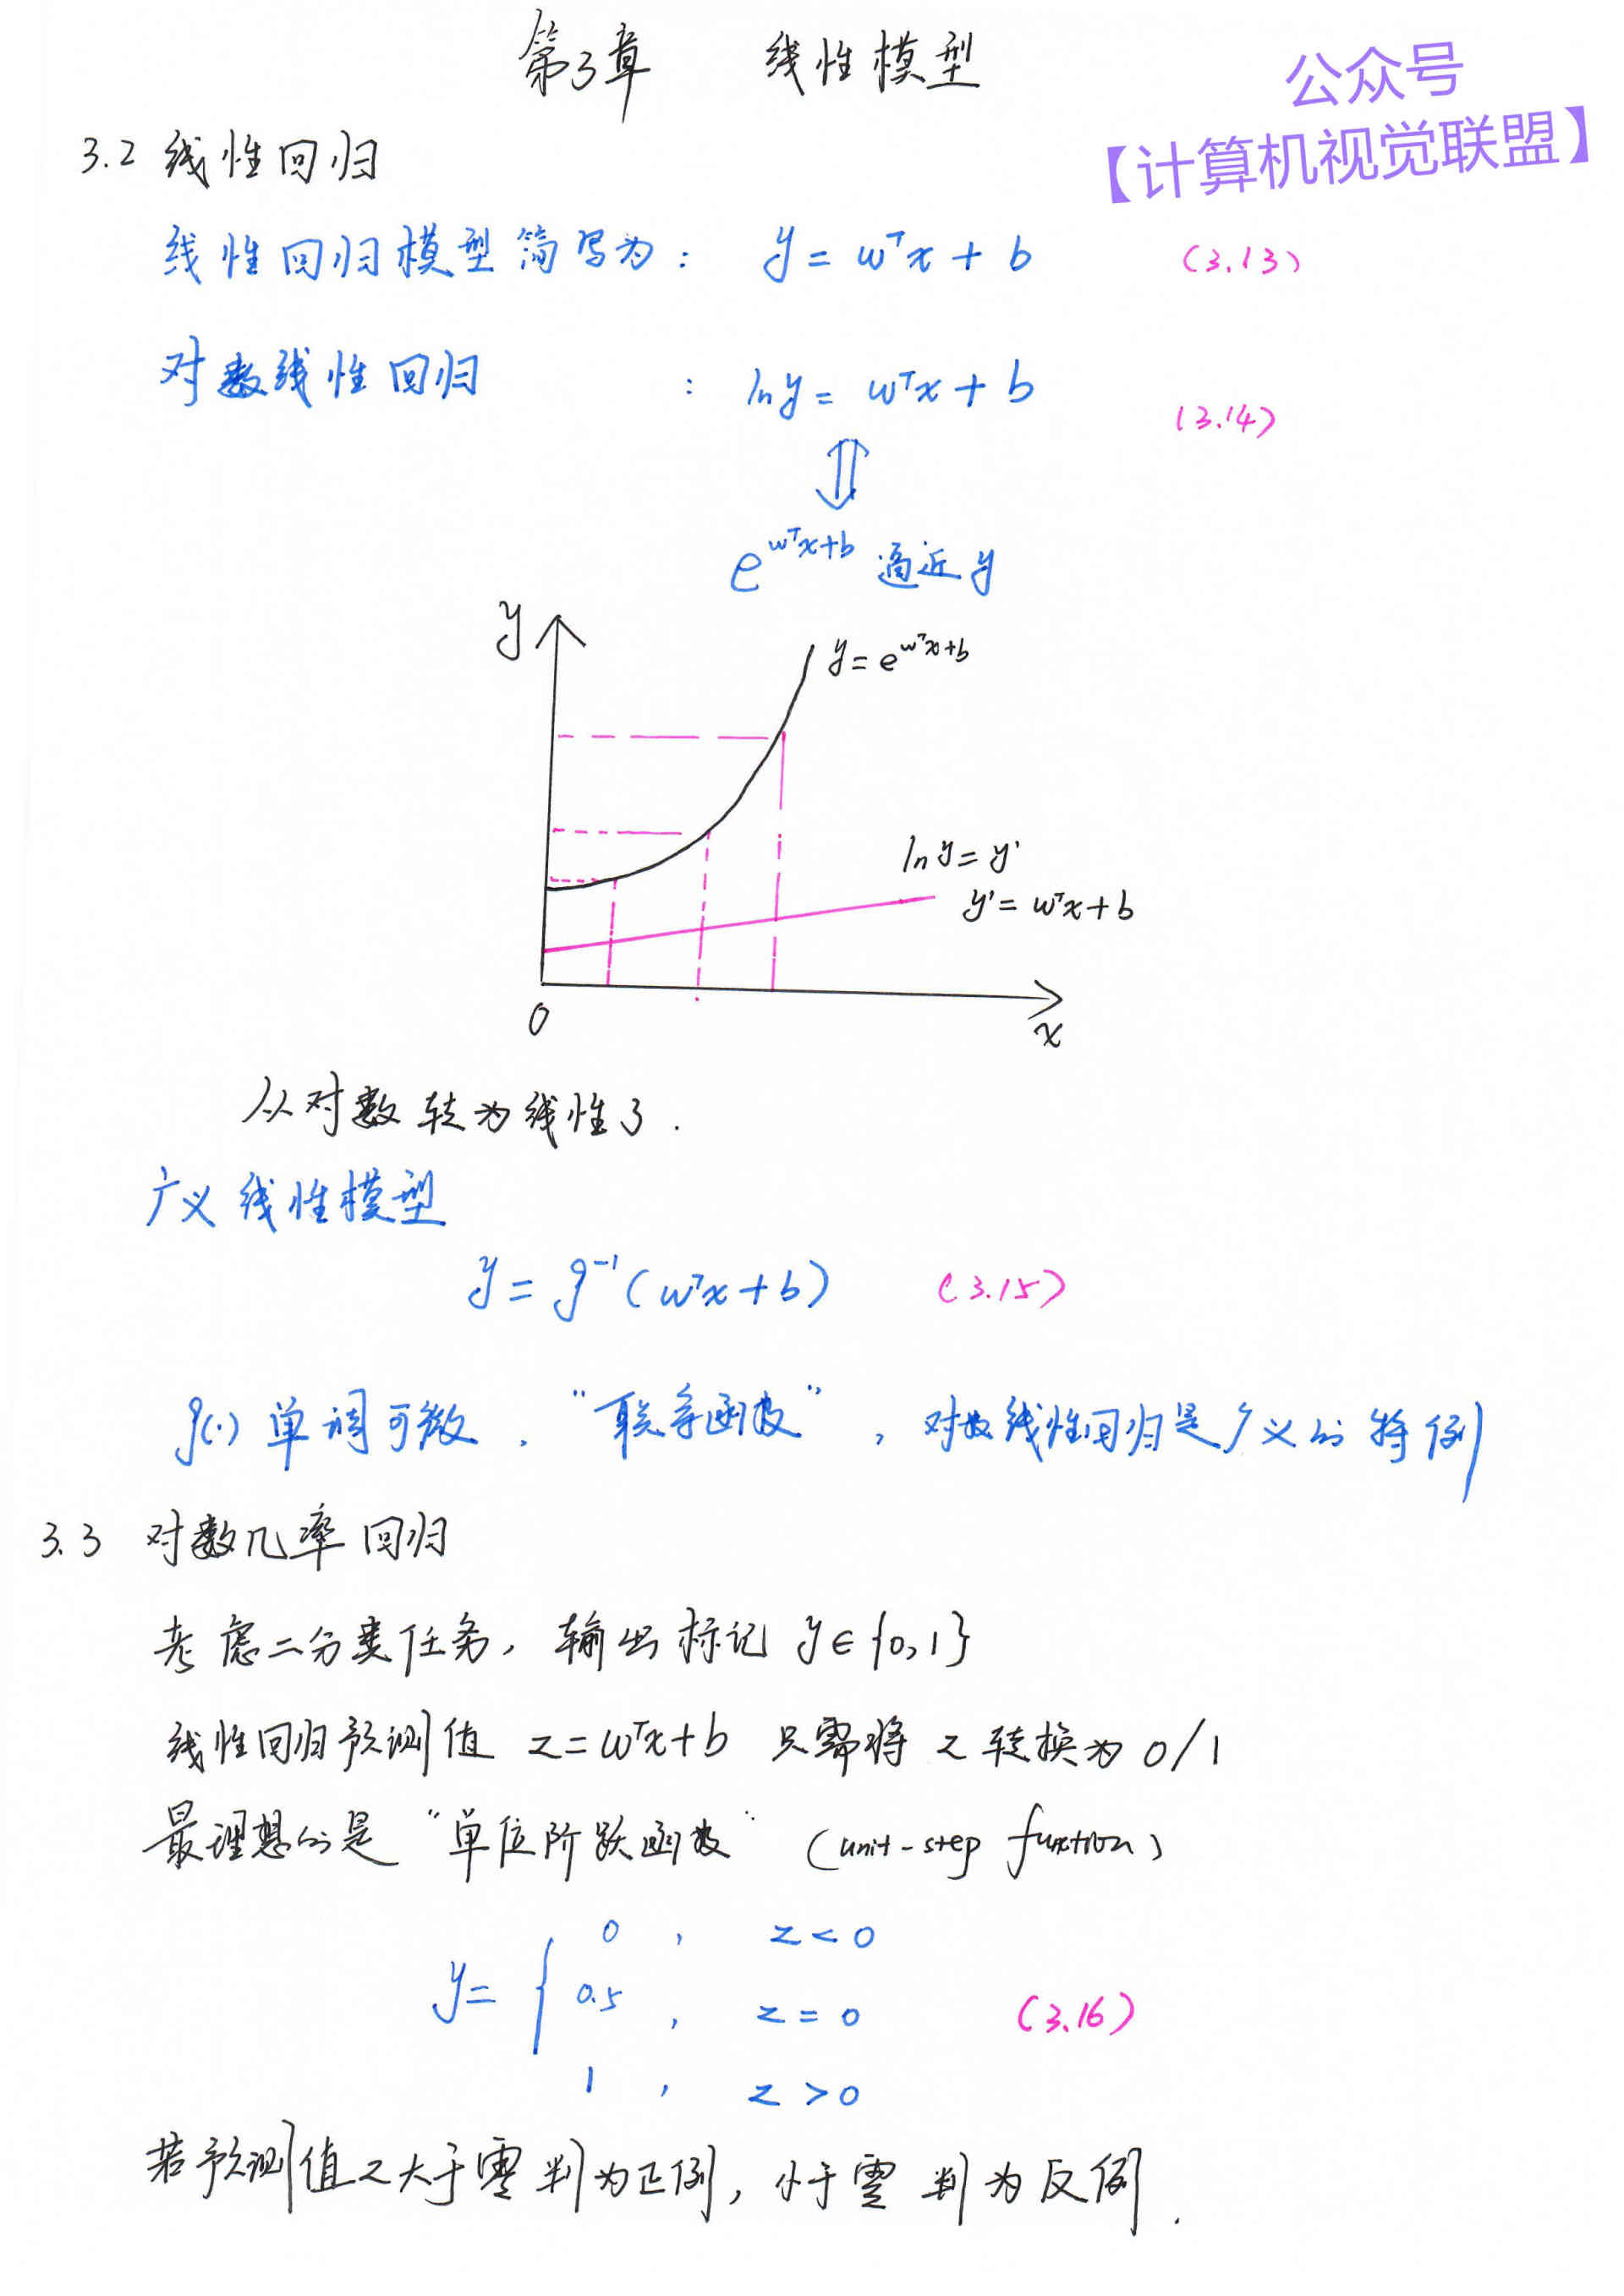 第3章 线性模型
公众号
【计算机视觉联盟】
3.2 线性回归
线性回归模型简写为: y = wᵀx + b (3.13)
对数线性回归 : ln y = wᵀx + b (3.14)
⇕
e^{wᵀx+b} 逼近 y
y
y = e^{wᵀx+b}
ln y = y'
y' = wᵀx + b
0
x
从对数转为线性了.
广义线性模型
y = g⁻¹(wᵀx + b) (3.15)
g(·) 单调可微, “联系函数”, 对数线性回归是广义的特例
3.3 对数几率回归
考虑二分类任务, 输出标记 y∈{0,1}
线性回归预测值 z = wᵀx + b 只需将 z 转换为 0/1
最理想的是 “单位阶跃函数” (unit-step function)
0 , z < 0
y = { 0.5 , z = 0 (3.16)
1 , z > 0
若预测值z大于零判为正例, 小于零判为反例.